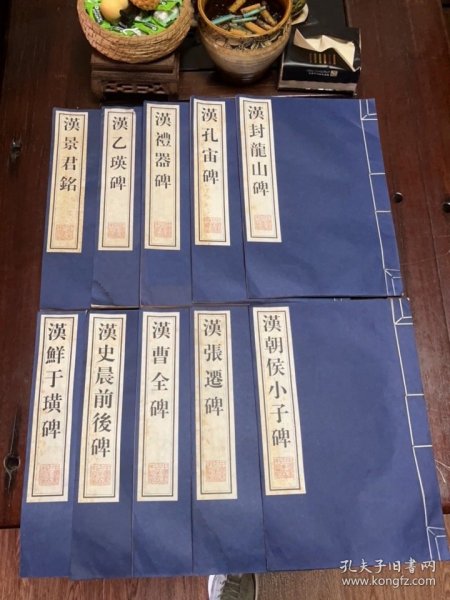 漢景君銘
漢乙瑛碑
漢禮器碑
漢孔宙碑
漢封龍山碑
漢鮮于璜碑
漢史晨前後碑
漢曹全碑
漢張遷碑
漢朝侯小子碑
孔夫子旧书网
www.kongfz.com